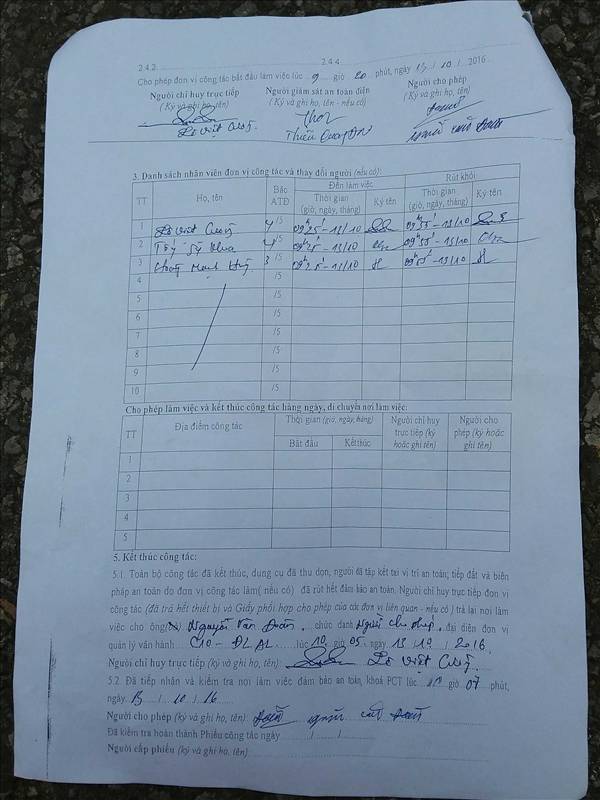 2.4.2. 2.4.4.
Cho phép đơn vị công tác bắt đầu làm việc lúc 9 giờ 20 phút, ngày 13 / 10 / 2016
Người chỉ huy trực tiếp Người giám sát an toàn điện Người cho phép
(Ký và ghi họ, tên) (Ký và ghi họ, tên - nếu có) (Ký và ghi họ, tên)
Lê Việt Cường
3. Danh sách nhân viên đơn vị công tác và thay đổi người (nếu có):
TT Họ, tên Bậc ATĐ Đến làm việc Rút khỏi
Thời gian (giờ, ngày, tháng) Ký tên Thời gian (giờ, ngày, tháng) Ký tên
1 Lê Việt Cường 4/5 09h25'-13/10 09h55'-13/10
2 4/5 09h25'-13/10 09h55'-13/10
3 3/5 09h25'-13/10 09h55'-13/10
4 /5
5 /5
6 /5
7 /5
8 /5
9 /5
10 /5
Cho phép làm việc và kết thúc công tác hàng ngày, di chuyển nơi làm việc:
TT Địa điểm công tác Thời gian (giờ, ngày, tháng) Người chỉ huy trực tiếp (ký hoặc ghi tên) Người cho phép (ký hoặc ghi tên)
Bắt đầu Kết thúc
1
2
3
4
5
5. Kết thúc công tác:
5.1. Toàn bộ công tác đã kết thúc, dụng cụ đã thu dọn, người đã tập kết tại vị trí an toàn; tiếp đất và biện
pháp an toàn do đơn vị công tác làm( nếu có) đã rút hết đảm bảo an toàn. Người chỉ huy trực tiếp đơn vị
công tác (đã trả hết thiết bị và Giấy phối hợp cho phép của các đơn vị liên quan - nếu có ) trả lại nơi làm
việc cho ông Nguyễn Văn Đoàn chức danh Người cho phép đại diện đơn vị
quản lý vận hành CTO - ĐLAL lúc 10 giờ 05 ngày 13 / 10 / 2016
Người chỉ huy trực tiếp (ký và ghi họ, tên): Lê Việt Cường
5.2. Đã tiếp nhận và kiểm tra nơi làm việc đảm bảo an toàn, khoá PCT lúc 10 giờ 07 phút,
ngày 13 / 10 / 16
Người cho phép (ký và ghi họ, tên)
Đã kiểm tra hoàn thành Phiếu công tác ngày / /
Người cấp phiếu (ký và ghi họ, tên)